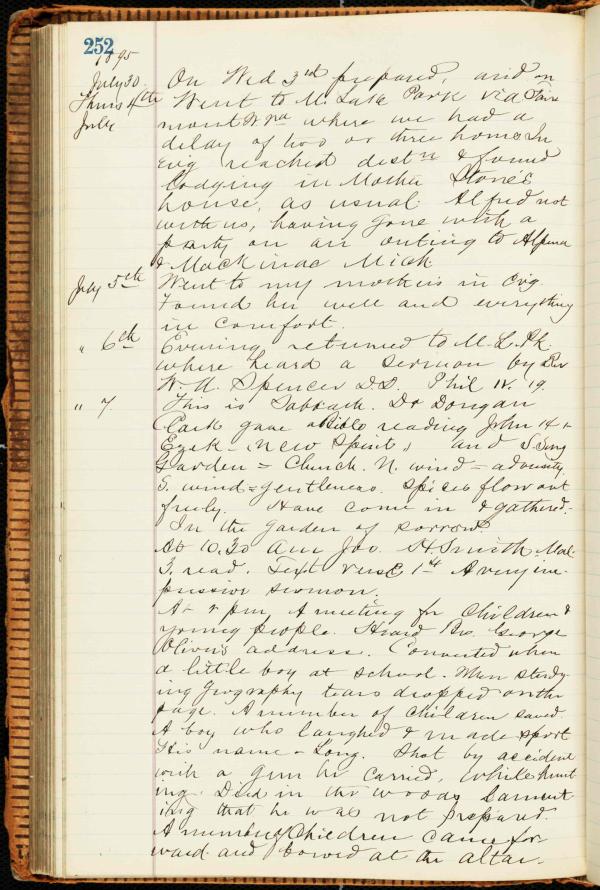 252
1895
July 30.
On Wed 3rd prepared, and on
Thurs 4th
Went to M. Lake Park via Fair
July
mont W Va where we had a
delay of two or three hours In
Evg reached destn & found
lodging in Mother Stone's
house, as usual. Alfred not
with us, having gone with a
party on an outing to Alpena
& Mackinac Mich
July 5th
Went to my mother's in Evg.
Found her well and everything
in comfort.
" 6th
Evening returned to M. L. Pk.
where heard a sermon by Rev
W. A. Spencer D.D. Phil IV. 19.
" 7.
This is Sabbath. Dr Dougan
Clark gave a Bible reading John 14 &
Ezek - (New Spirit) and S. Song
Garden = Church. N. wind = adversity.
S. wind = gentleness. Spices flow out
freely. Have come in & gathered.
In the garden of sorrow.
At 10.30 am Jos. H. Smith Mal.
3. read. Text verse 1st A very im-
pressive sermon.
At 2 pm, A meeting for Children &
young people. Heard Bro. George
Oliver's address. Converted when
a little boy at school. When study-
ing Geography tears dropped on the
page. A number of children saved.
A boy who laughed & made sport
His name - Long. Shot by accident
with a gun he carried, while hunt
ing. Died in the woods lament
ing that he was not prepared.
A number of Children came for-
ward and bowed at the altar.